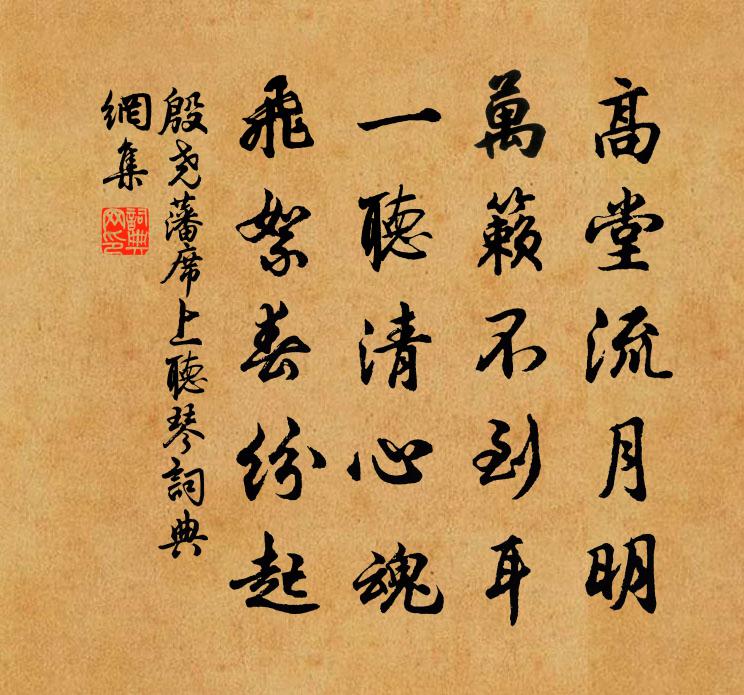 高堂流月明
萬籟不到耳
一聽清心魂
飛絮春紛起
殷尧藩席上聽琴詞典
網集
詞典
网印